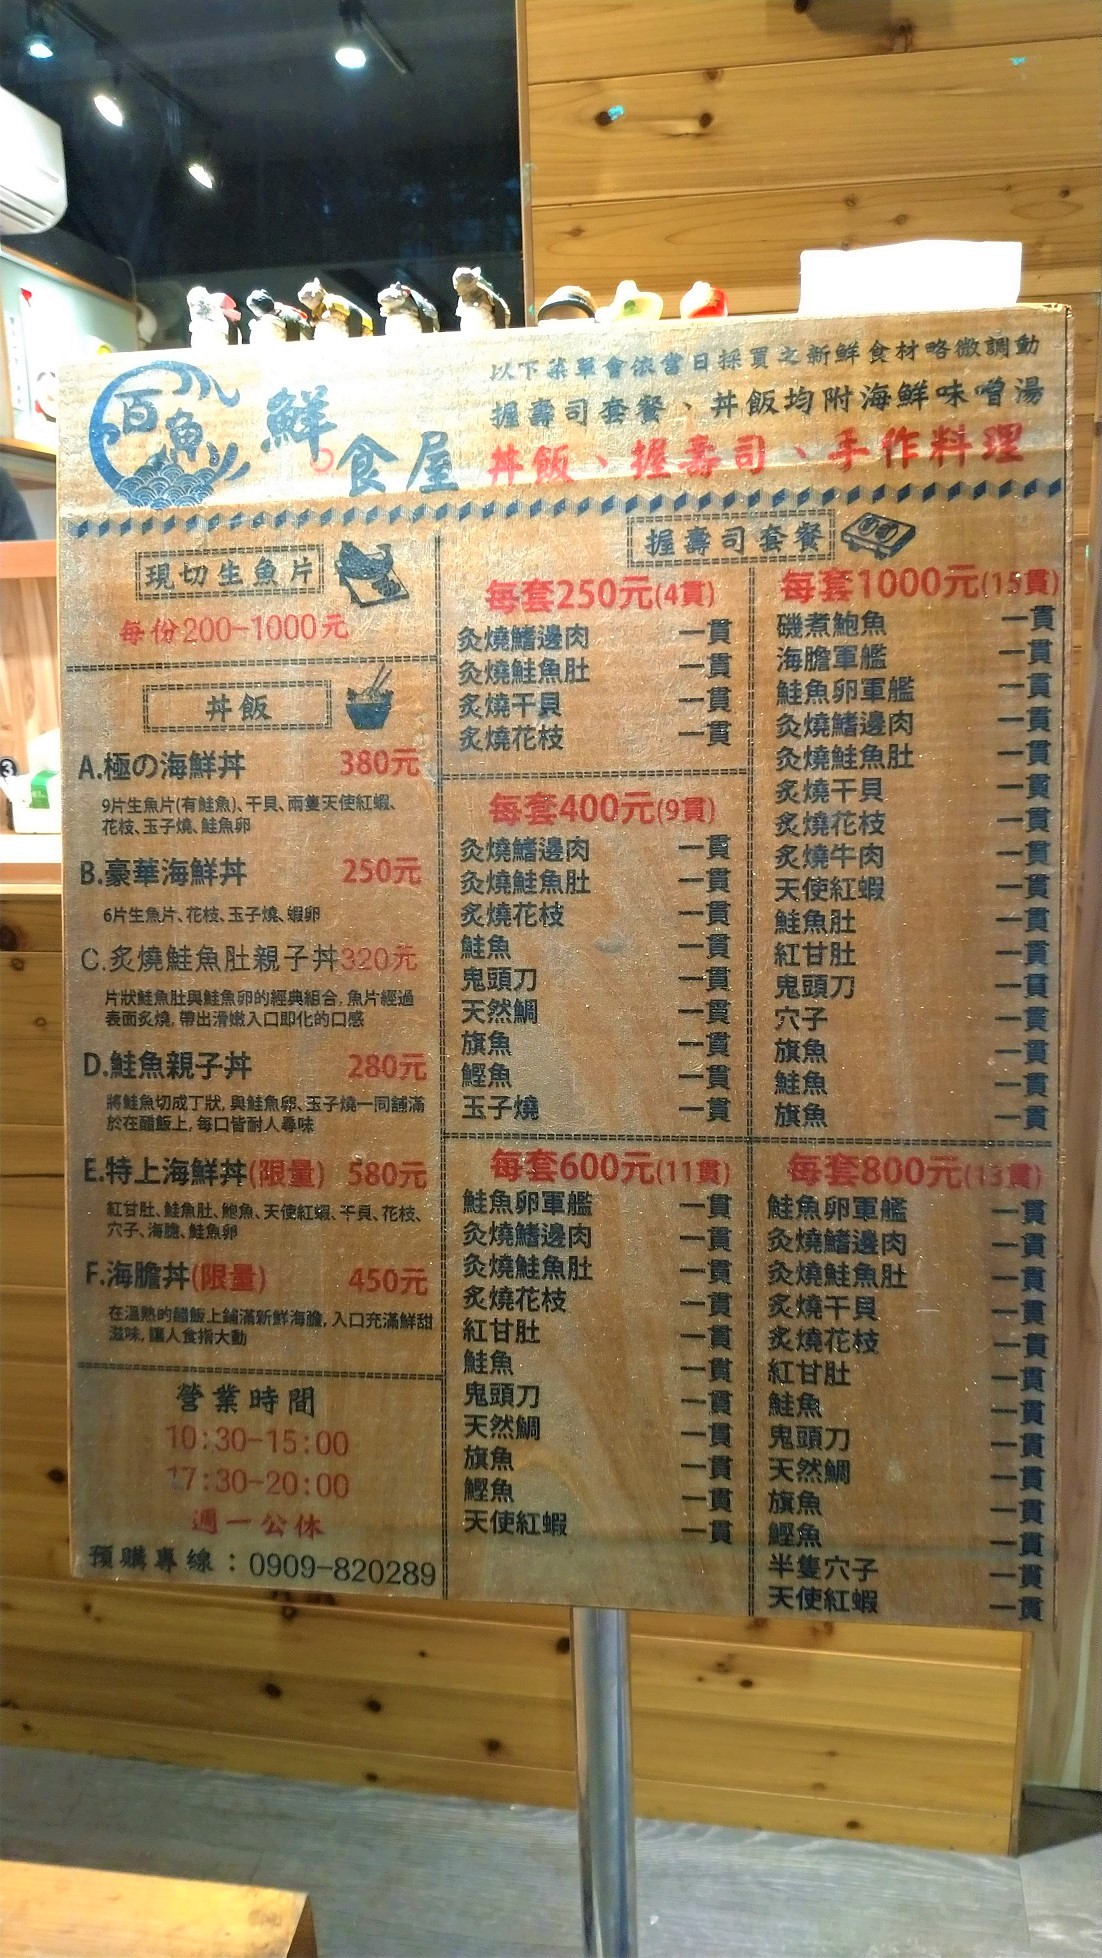 百魚
鮮食屋
以下菜單會依當日採買之新鮮食材略微調動
握壽司套餐、丼飯均附海鮮味噌湯
丼飯、握壽司、手作料理
現切生魚片
每份200-1000元
丼飯
A.極の海鮮丼 380元
9片生魚片(有鮭魚)、干貝、兩隻天使紅蝦、
花枝、玉子燒、鮭魚卵
B.豪華海鮮丼 250元
6片生魚片、花枝、玉子燒、蝦卵
C.炙燒鮭魚肚親子丼320元
片狀鮭魚肚與鮭魚卵的經典組合, 魚片經過
表面炙燒, 帶出滑嫩入口即化的口感
D.鮭魚親子丼 280元
將鮭魚切成丁狀, 與鮭魚卵、玉子燒一同舖滿
於在醋飯上, 每口皆耐人尋味
E.特上海鮮丼(限量) 580元
紅甘肚、鮭魚肚、鮑魚、天使紅蝦、干貝、花枝、
穴子、海膽、鮭魚卵
F.海膽丼(限量) 450元
在溫熱的醋飯上鋪滿新鮮海膽, 入口充滿鮮甜
滋味, 讓人食指大動
營業時間
10:30-15:00
17:30-20:00
週一公休
預購專線：0909-820289
握壽司套餐
每套250元(4貫)
灸燒鰭邊肉 一貫
灸燒鮭魚肚 一貫
炙燒干貝 一貫
炙燒花枝 一貫
每套400元(9貫)
灸燒鰭邊肉 一貫
灸燒鮭魚肚 一貫
炙燒花枝 一貫
鮭魚 一貫
鬼頭刀 一貫
天然鯛 一貫
旗魚 一貫
鰹魚 一貫
玉子燒 一貫
每套600元(11貫)
鮭魚卵軍艦 一貫
灸燒鰭邊肉 一貫
灸燒鮭魚肚 一貫
炙燒花枝 一貫
紅甘肚 一貫
鮭魚 一貫
鬼頭刀 一貫
天然鯛 一貫
旗魚 一貫
鰹魚 一貫
天使紅蝦 一貫
每套1000元(15貫)
磯煮鮑魚 一貫
海膽軍艦 一貫
鮭魚卵軍艦 一貫
灸燒鰭邊肉 一貫
灸燒鮭魚肚 一貫
炙燒干貝 一貫
炙燒花枝 一貫
炙燒牛肉 一貫
天使紅蝦 一貫
鮭魚肚 一貫
紅甘肚 一貫
鬼頭刀 一貫
穴子 一貫
旗魚 一貫
鮭魚 一貫
旗魚 一貫
每套800元(13貫)
鮭魚卵軍艦 一貫
灸燒鰭邊肉 一貫
灸燒鮭魚肚 一貫
炙燒干貝 一貫
炙燒花枝 一貫
紅甘肚 一貫
鮭魚 一貫
鬼頭刀 一貫
天然鯛 一貫
旗魚 一貫
鰹魚 一貫
半隻穴子 一貫
天使紅蝦 一貫